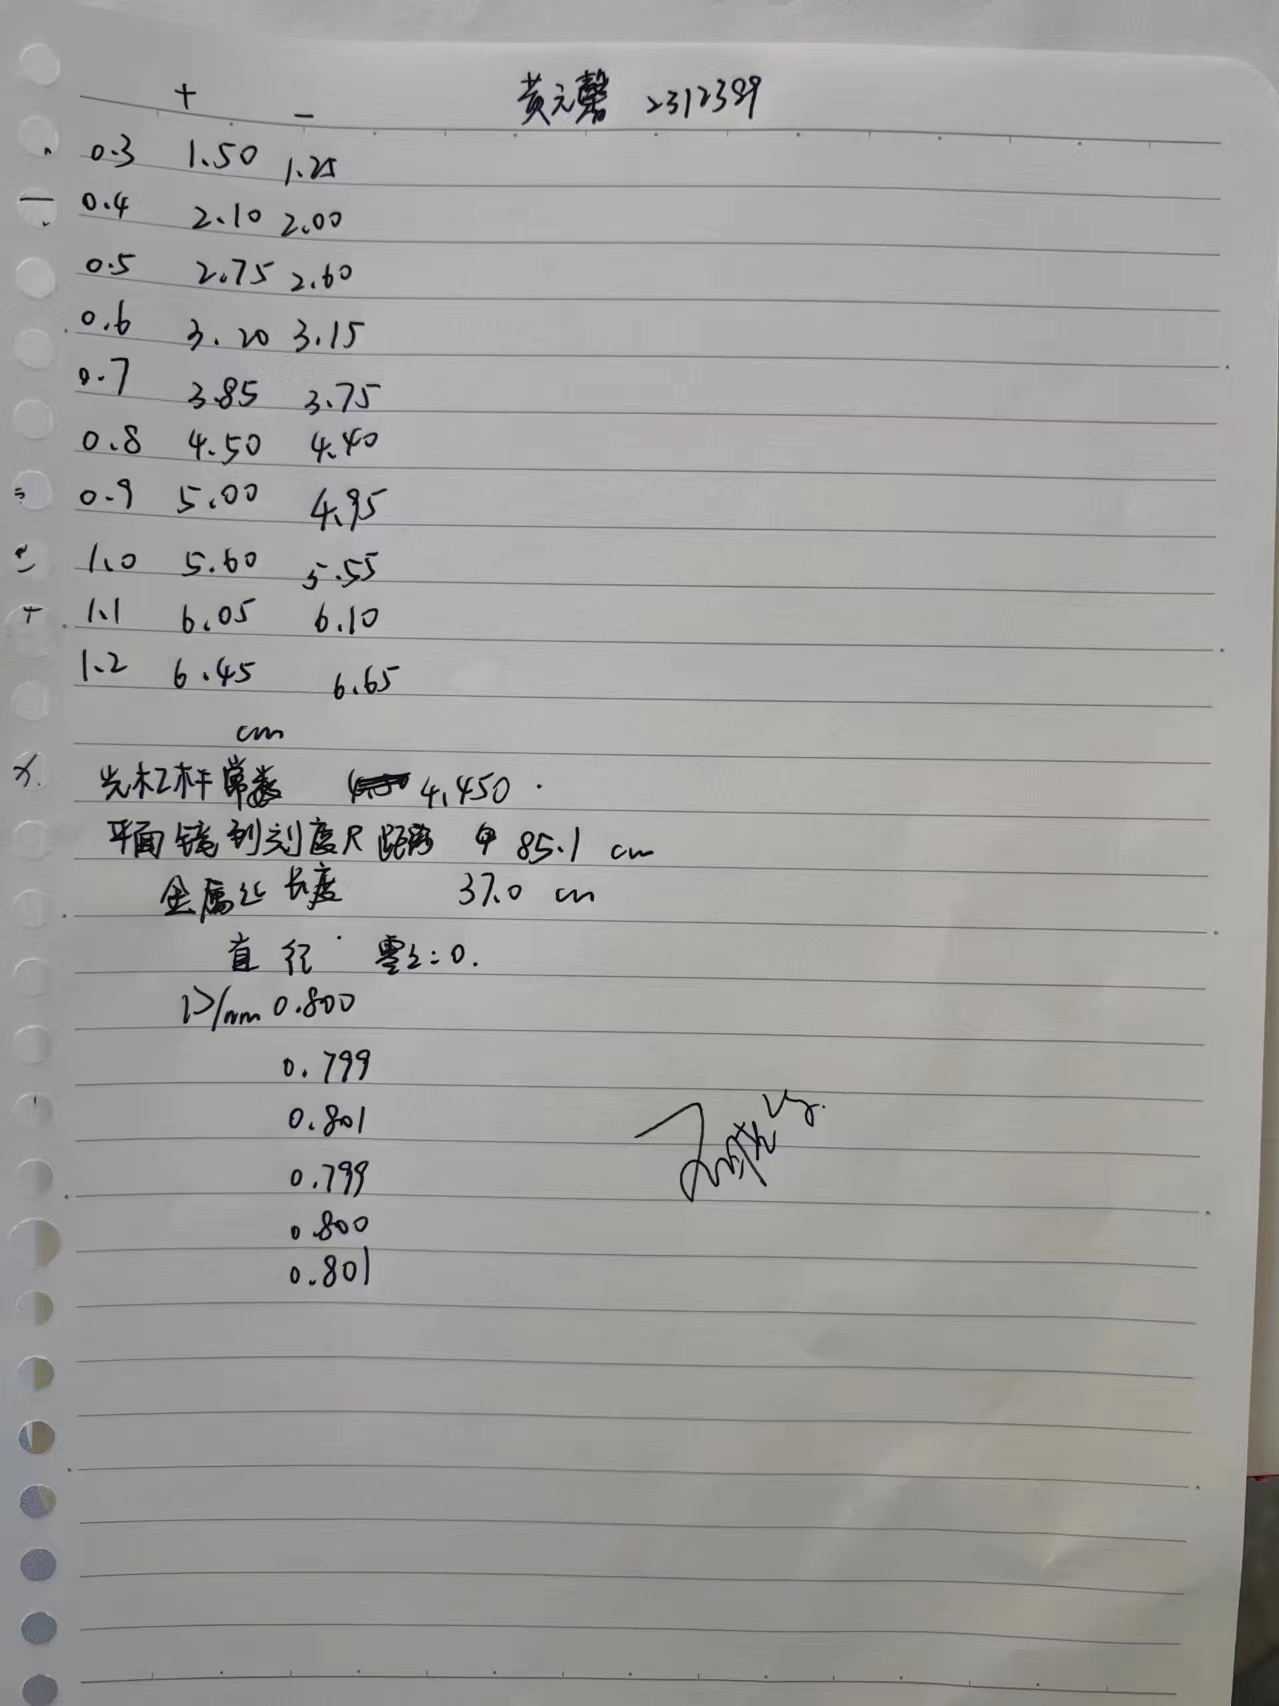 黄元馨 2312389
+ -
0.3 1.50 1.25
0.4 2.10 2.00
0.5 2.75 2.60
0.6 3.20 3.15
0.7 3.85 3.75
0.8 4.50 4.40
0.9 5.00 4.95
1.0 5.60 5.55
1.1 6.05 6.10
1.2 6.45 6.65
cm
光杠杆常数 4.450
平面镜到刻度尺距离 85.1 cm
金属丝长度 37.0 cm
直径 零:0.
D/mm 0.800
0.799
0.801
0.799
0.800
0.801